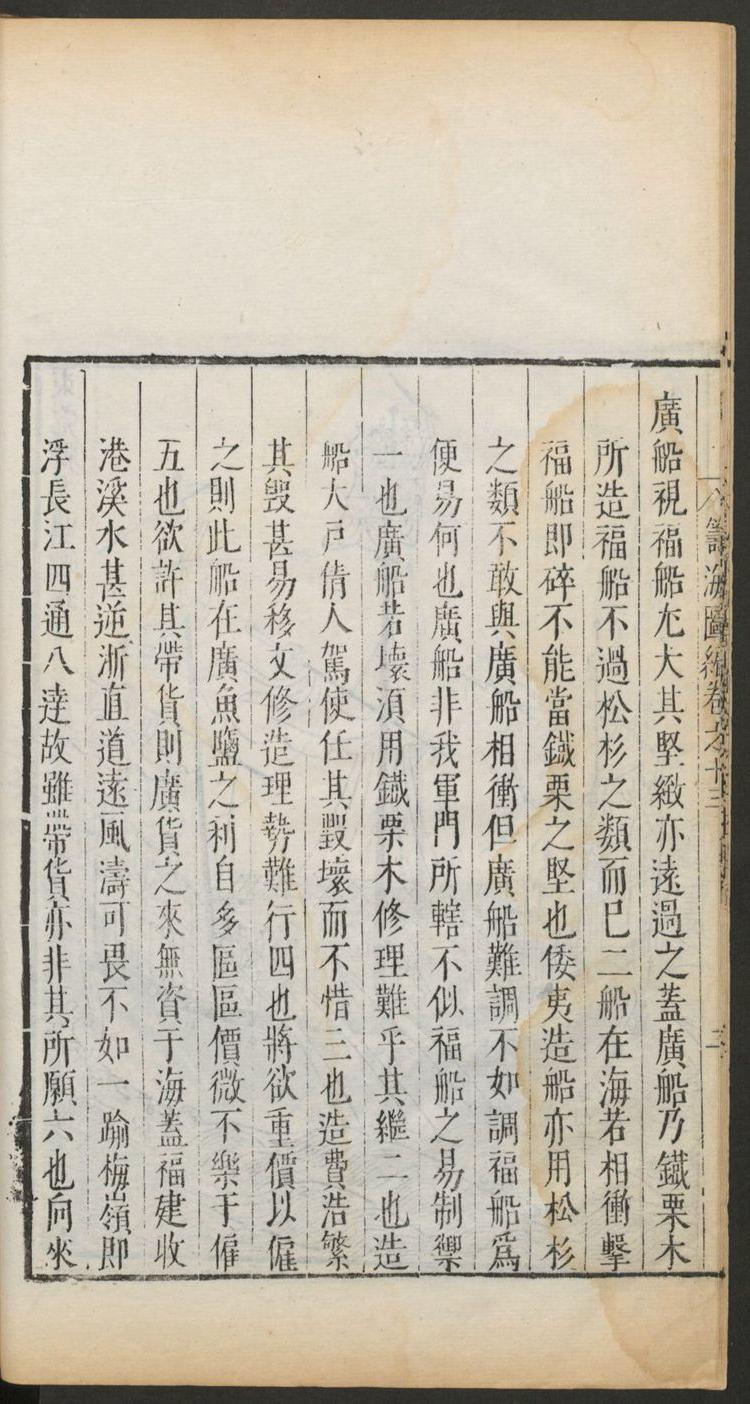 籌海圖編卷之十三
廣船視福船尤大其堅緻亦遠過之蓋廣船乃鐵栗木
所造福船不過松杉之類而巳二船在海若相衝擊
福船即碎不能當鐵栗之堅也倭夷造船亦用松杉
之類不敢與廣船相衝但廣船難調不如調福船爲
便易何也廣船非我軍門所轄不似福船之易制禦
一也廣船若壞須用鐵栗木修理難乎其繼二也造
船大戸倩人駕使任其毀壞而不惜三也造費浩繁
其毀甚易移文修造理勢難行四也將欲重價以僱
之則此船在廣魚鹽之利自多區區價微不樂于僱
五也欲許其帶貨則廣貨之來無資于海蓋福建收
港溪水甚逆浙直道遠風濤可畏不如一踰梅嶺即
浮長江四通八達故雖帶貨亦非其所願六也向來